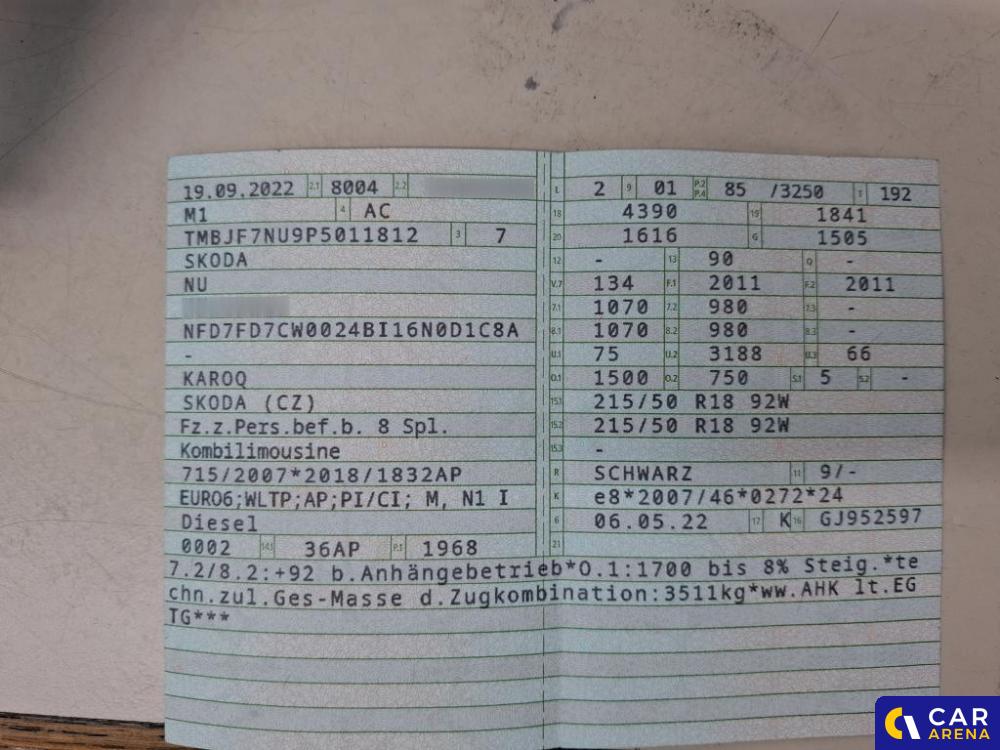 19.09.2022 2.1 8004 2.2
M1 4 AC
TMBJF7NU9P5011812 3 7
SKODA
NU
NFD7FD7CW0024BI16N0D1C8A
-
KAROQ
SKODA (CZ)
Fz.z.Pers.bef.b. 8 Spl.
Kombilimousine
715/2007*2018/1832AP
EURO6;WLTP;AP;PI/CI; M, N1 I
Diesel
0002 14.1 36AP P.1 1968
L 2 9 01 P.2 P.4 85 /3250 T 192
18 4390 19 1841
20 1616 G 1505
12 - 13 90 Q -
V.7 134 F.1 2011 F.2 2011
7.1 1070 7.2 980 7.3 -
8.1 1070 8.2 980 8.3 -
U.1 75 U.2 3188 U.3 66
O.1 1500 O.2 750 S.1 5 S.2 -
15.1 215/50 R18 92W
15.2 215/50 R18 92W
15.3 -
R SCHWARZ 11 9/-
K e8*2007/46*0272*24
6 06.05.22 17 K 16 GJ952597
21
7.2/8.2:+92 b.Anhängebetrieb*O.1:1700 bis 8% Steig.*te
chn.zul.Ges-Masse d.Zugkombination:3511kg*ww.AHK lt.EG
TG***
CAR
ARENA